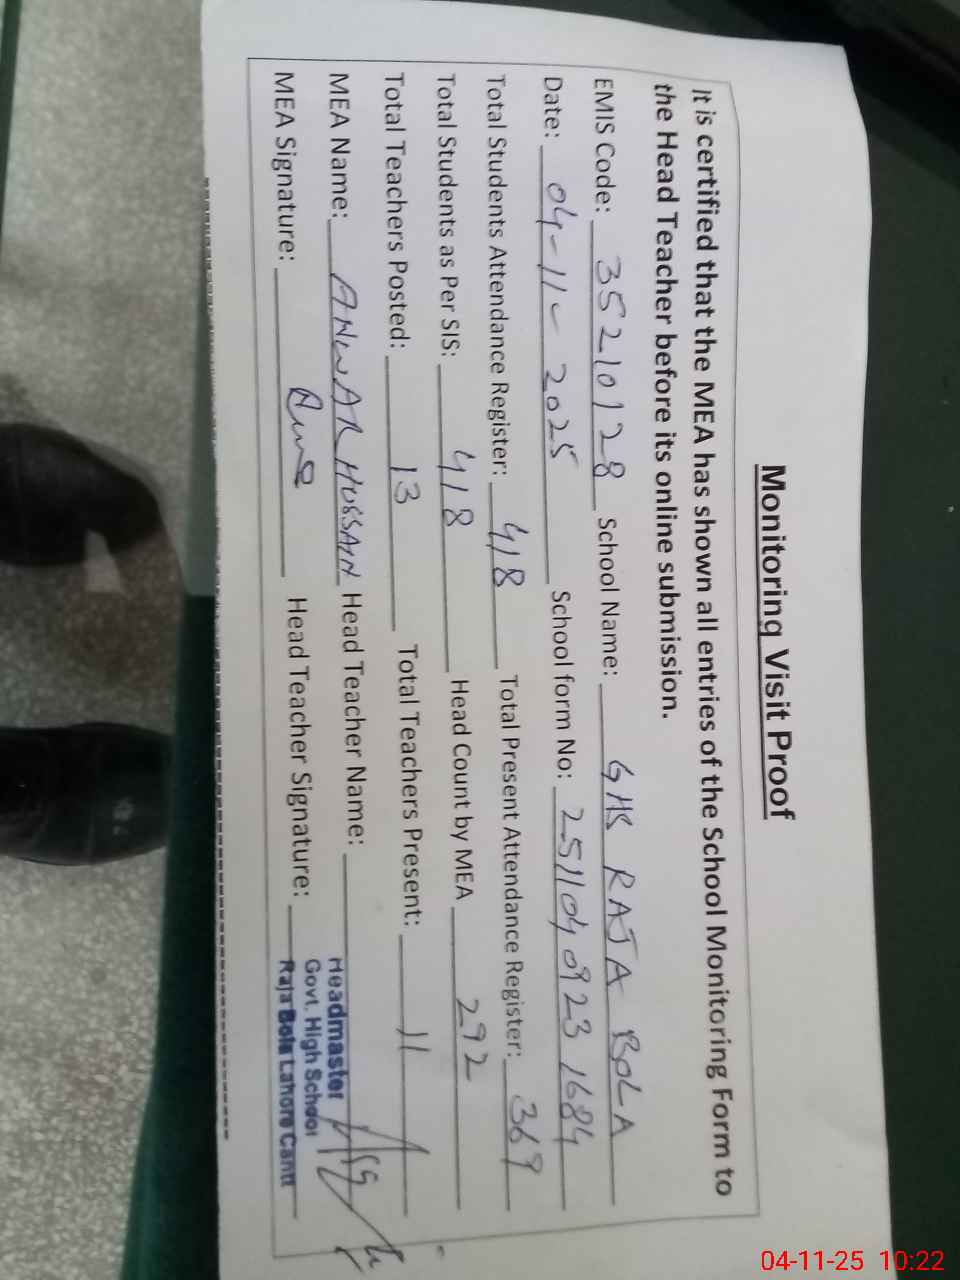 Monitoring Visit Proof
It is certified that the MEA has shown all entries of the School Monitoring Form to
the Head Teacher before its online submission.
EMIS Code: 35210128 School Name: GHS RAJA BOLA
Date: 04-11-2025 School form No: 2511040923 1684
Total Students Attendance Register: 418 Total Present Attendance Register: 369
Total Students as Per SIS: 418 Head Count by MEA 292
Total Teachers Posted: 13 Total Teachers Present: 11
MEA Name: ANWAR HUSSAIN Head Teacher Name:
MEA Signature: Head Teacher Signature:
Headmaster
Govt. High School
Raja Bola Lahore Cantt
04-11-25 10:22